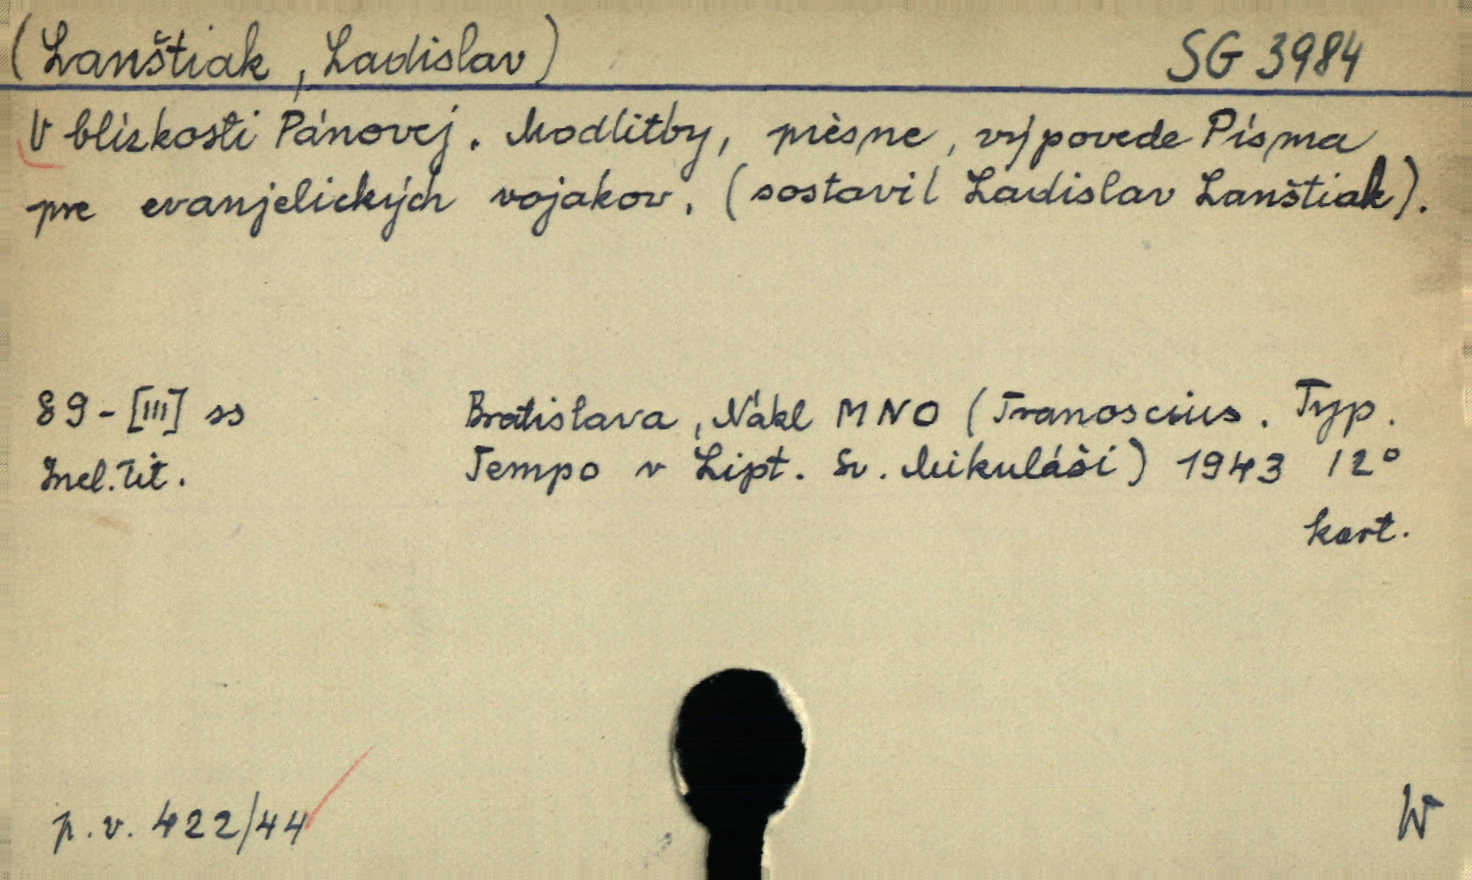 (Lanštiak, Ladislav) SG 3984
V blízkosti Pánovej. Modlitby, piesne, výpovede Písma
pre evanjelických vojakov. (sostavil Ladislav Lanštiak).
89-[III] ss Bratislava, Nákl MNO (Tranoscius. Typ.
Incl. tit. Tempo v Lipt. Sv. Mikuláši) 1943 12°
kart.
p.v. 422/44 W